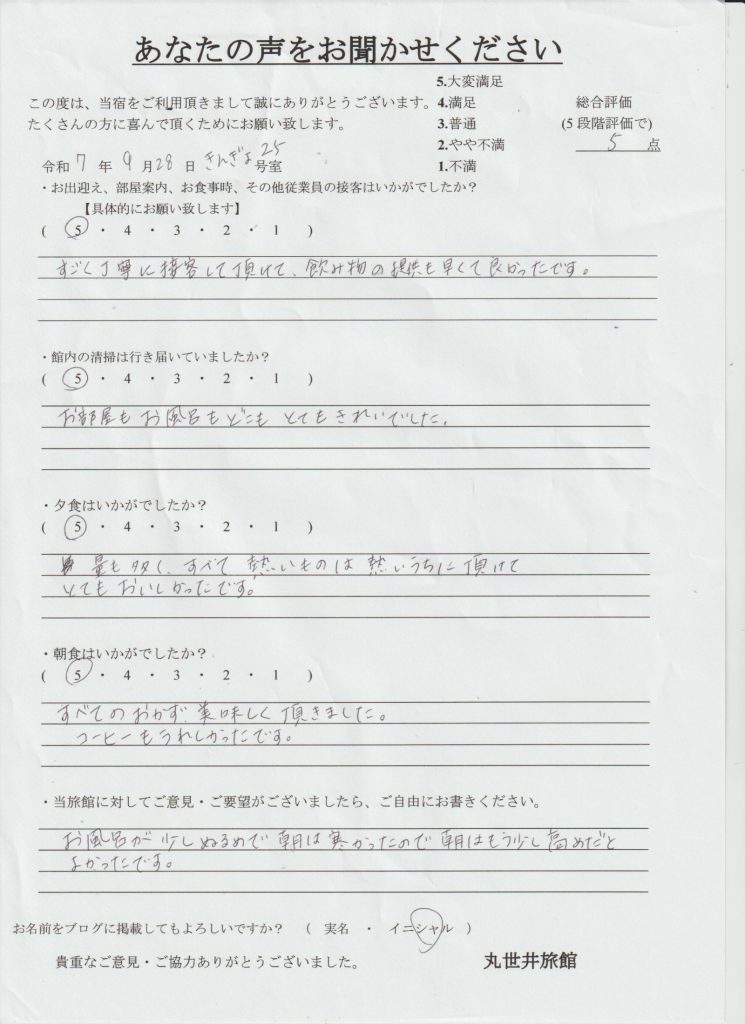 あなたの声をお聞かせください
5.大変満足
この度は、当宿をご利用頂きまして誠にありがとうございます。 4.満足 総合評価
たくさんの方に喜んで頂くためにお願い致します。 3.普通 (5段階評価で)
2.やや不満 5 点
令和 7 年 9 月 28 日 きんぎょ 25 号室 1.不満
・お出迎え、部屋案内、お食事時、その他従業員の接客はいかがでしたか？
【具体的にお願い致します】
( 5 ・ 4 ・ 3 ・ 2 ・ 1 )
すごく丁寧に接客して頂けて、飲み物の提供も早くて良かったです。
・館内の清掃は行き届いていましたか？
( 5 ・ 4 ・ 3 ・ 2 ・ 1 )
お部屋もお風呂もどこもとてもきれいでした。
・夕食はいかがでしたか？
( 5 ・ 4 ・ 3 ・ 2 ・ 1 )
量も多く、すべて熱いものは熱いうちに頂けて
とてもおいしかったです。
・朝食はいかがでしたか？
( 5 ・ 4 ・ 3 ・ 2 ・ 1 )
すべてのおかず美味しく頂きました。
コーヒーもうれしかったです。
・当旅館に対してご意見・ご要望がございましたら、ご自由にお書きください。
お風呂が少しぬるめで朝は寒かったので朝はもう少し高めだと
よかったです。
お名前をブログに掲載してもよろしいですか？ ( 実名 ・ イニシャル )
貴重なご意見・ご協力ありがとうございました。 丸世井旅館